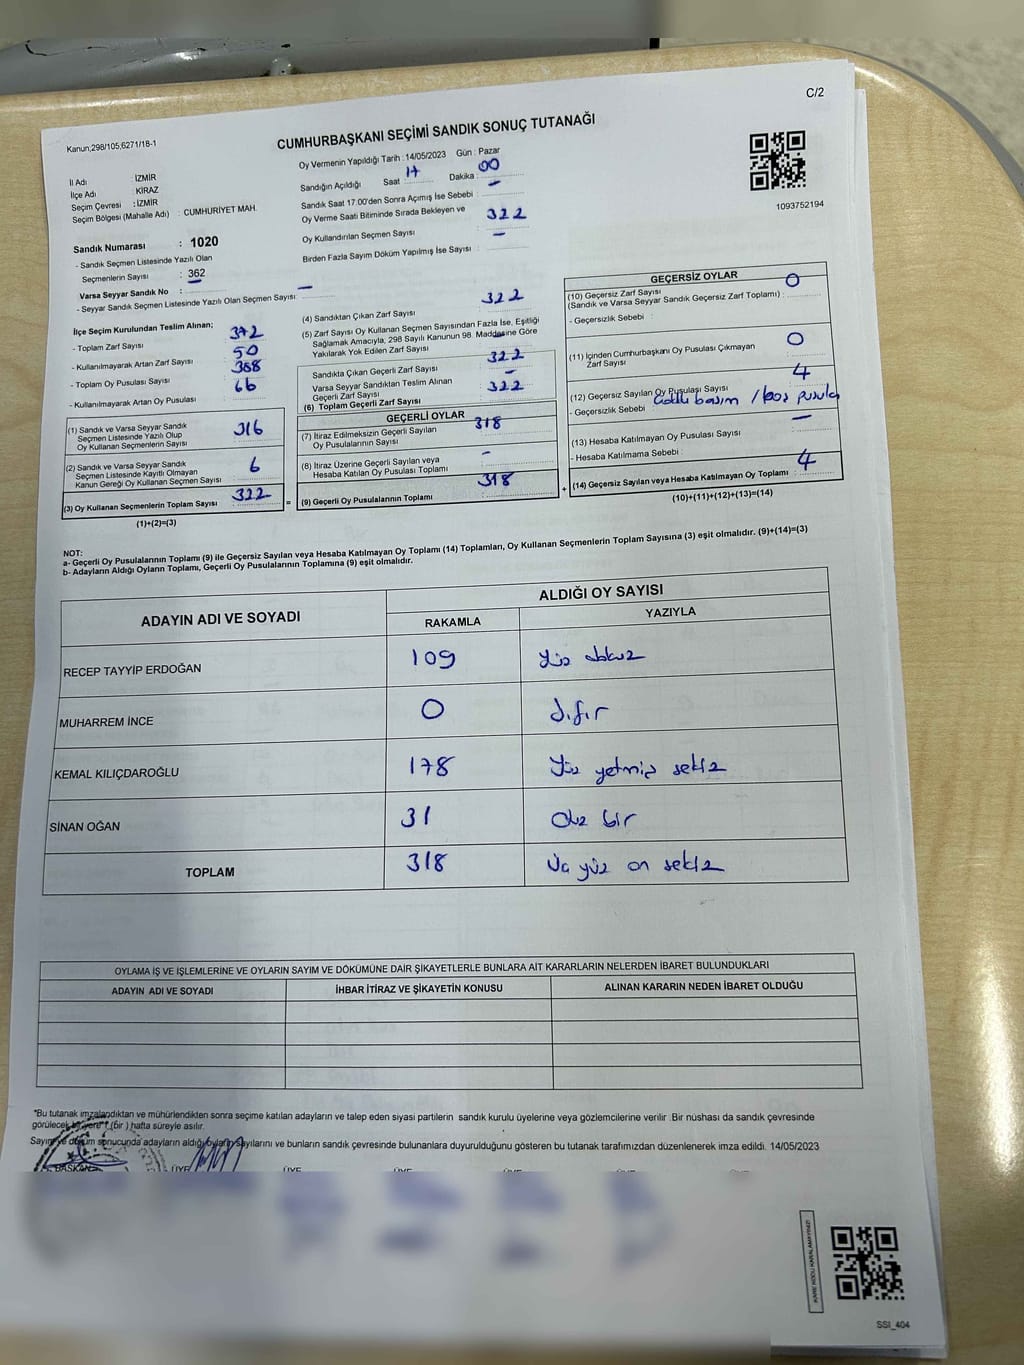 C/2
Kanun,298/105;6271/18-1
CUMHURBAŞKANI SEÇİMİ SANDIK SONUÇ TUTANAĞI
Oy Vermenin Yapıldığı Tarih : 14/05/2023 Gün : Pazar
İl Adı : İZMİR
İlçe Adı : KİRAZ
Seçim Çevresi : İZMİR
Seçim Bölgesi (Mahalle Adı) : CUMHURİYET MAH.
Sandığın Açıldığı Saat 17 Dakika 00
Sandık Saat 17.00'den Sonra Açımış İse Sebebi : –
Oy Verme Saati Bitiminde Sırada Bekleyen ve
Oy Kullandırılan Seçmen Sayısı : 322
Birden Fazla Sayım Döküm Yapılmış İse Sayısı : –
1093752194
Sandık Numarası : 1020
- Sandık Seçmen Listesinde Yazılı Olan
Seçmenlerin Sayısı : 362
Varsa Seyyar Sandık No : –
- Seyyar Sandık Seçmen Listesinde Yazılı Olan Seçmen Sayısı:
İlçe Seçim Kurulundan Teslim Alınan;
- Toplam Zarf Sayısı 372
- Kullanılmayarak Artan Zarf Sayısı 50
- Toplam Oy Pusulası Sayısı 388
- Kullanılmayarak Artan Oy Pusulası : 66
(1) Sandık ve Varsa Seyyar Sandık
Seçmen Listesinde Yazılı Olup
Oy Kullanan Seçmenlerin Sayısı 316
(2) Sandık ve Varsa Seyyar Sandık
Seçmen Listesinde Kayıtlı Olmayan
Kanun Gereği Oy Kullanan Seçmen Sayısı 6
(3) Oy Kullanan Seçmenlerin Toplam Sayısı 322
(1)+(2)=(3)
(4) Sandıktan Çıkan Zarf Sayısı 322
(5) Zarf Sayısı Oy Kullanan Seçmen Sayısından Fazla İse, Eşitliği
Sağlamak Amacıyla, 298 Sayılı Kanunun 98. Maddesine Göre
Yakılarak Yok Edilen Zarf Sayısı –
Sandıkta Çıkan Geçerli Zarf Sayısı 322
Varsa Seyyar Sandıktan Teslim Alınan
Geçerli Zarf Sayısı –
(6) Toplam Geçerli Zarf Sayısı 322
GEÇERLİ OYLAR
(7) İtiraz Edilmeksizin Geçerli Sayılan
Oy Pusulalarının Sayısı 318
(8) İtiraz Üzerine Geçerli Sayılan veya
Hesaba Katılan Oy Pusulası Toplamı –
= (9) Geçerli Oy Pusulalarının Toplamı 318
GEÇERSİZ OYLAR
(10) Geçersiz Zarf Sayısı
(Sandık ve Varsa Seyyar Sandık Geçersiz Zarf Toplamı) : 0
- Geçersizlik Sebebi :
(11) İçinden Cumhurbaşkanı Oy Pusulası Çıkmayan
Zarf Sayısı 0
(12) Geçersiz Sayılan Oy Pusulası Sayısı 4
- Geçersizlik Sebebi : basım / boş pusula
(13) Hesaba Katılmayan Oy Pusulası Sayısı –
- Hesaba Katılmama Sebebi :
+ (14) Geçersiz Sayılan veya Hesaba Katılmayan Oy Toplamı : 4
(10)+(11)+(12)+(13)=(14)
NOT:
a- Geçerli Oy Pusulalarının Toplamı (9) ile Geçersiz Sayılan veya Hesaba Katılmayan Oy Toplamı (14) Toplamları, Oy Kullanan Seçmenlerin Toplam Sayısına (3) eşit olmalıdır. (9)+(14)=(3)
b- Adayların Aldığı Oyların Toplamı, Geçerli Oy Pusulalarının Toplamına (9) eşit olmalıdır.
ADAYIN ADI VE SOYADI ALDIĞI OY SAYISI
RAKAMLA YAZIYLA
RECEP TAYYİP ERDOĞAN 109 Yüz dokuz
MUHARREM İNCE 0 Sıfır
KEMAL KILIÇDAROĞLU 178 Yüz yetmiş sekiz
SİNAN OĞAN 31 Otuz bir
TOPLAM 318 Üç yüz on sekiz
OYLAMA İŞ VE İŞLEMLERİNE VE OYLARIN SAYIM VE DÖKÜMÜNE DAİR ŞİKAYETLERLE BUNLARA AİT KARARLARIN NELERDEN İBARET BULUNDUKLARI
ADAYIN ADI VE SOYADI İHBAR İTİRAZ VE ŞİKAYETİN KONUSU ALINAN KARARIN NEDEN İBARET OLDUĞU
*Bu tutanak imzalandıktan ve mühürlendikten sonra seçime katılan adayların ve talep eden siyasi partilerin sandık kurulu üyelerine veya gözlemcilerine verilir. Bir nüshası da sandık çevresinde
görülecek bir yere 1 (bir) hafta süreyle asılır.
Sayım ve döküm sonucunda adayların aldığı oyların sayılarını ve bunların sandık çevresinde bulunanlara duyurulduğunu gösteren bu tutanak tarafımızdan düzenlenerek imza edildi. 14/05/2023
BAŞKAN ÜYE ÜYE ÜYE ÜYE ÜYE ÜYE
KARE KODU KARALAMAYINIZ!
SSI_404